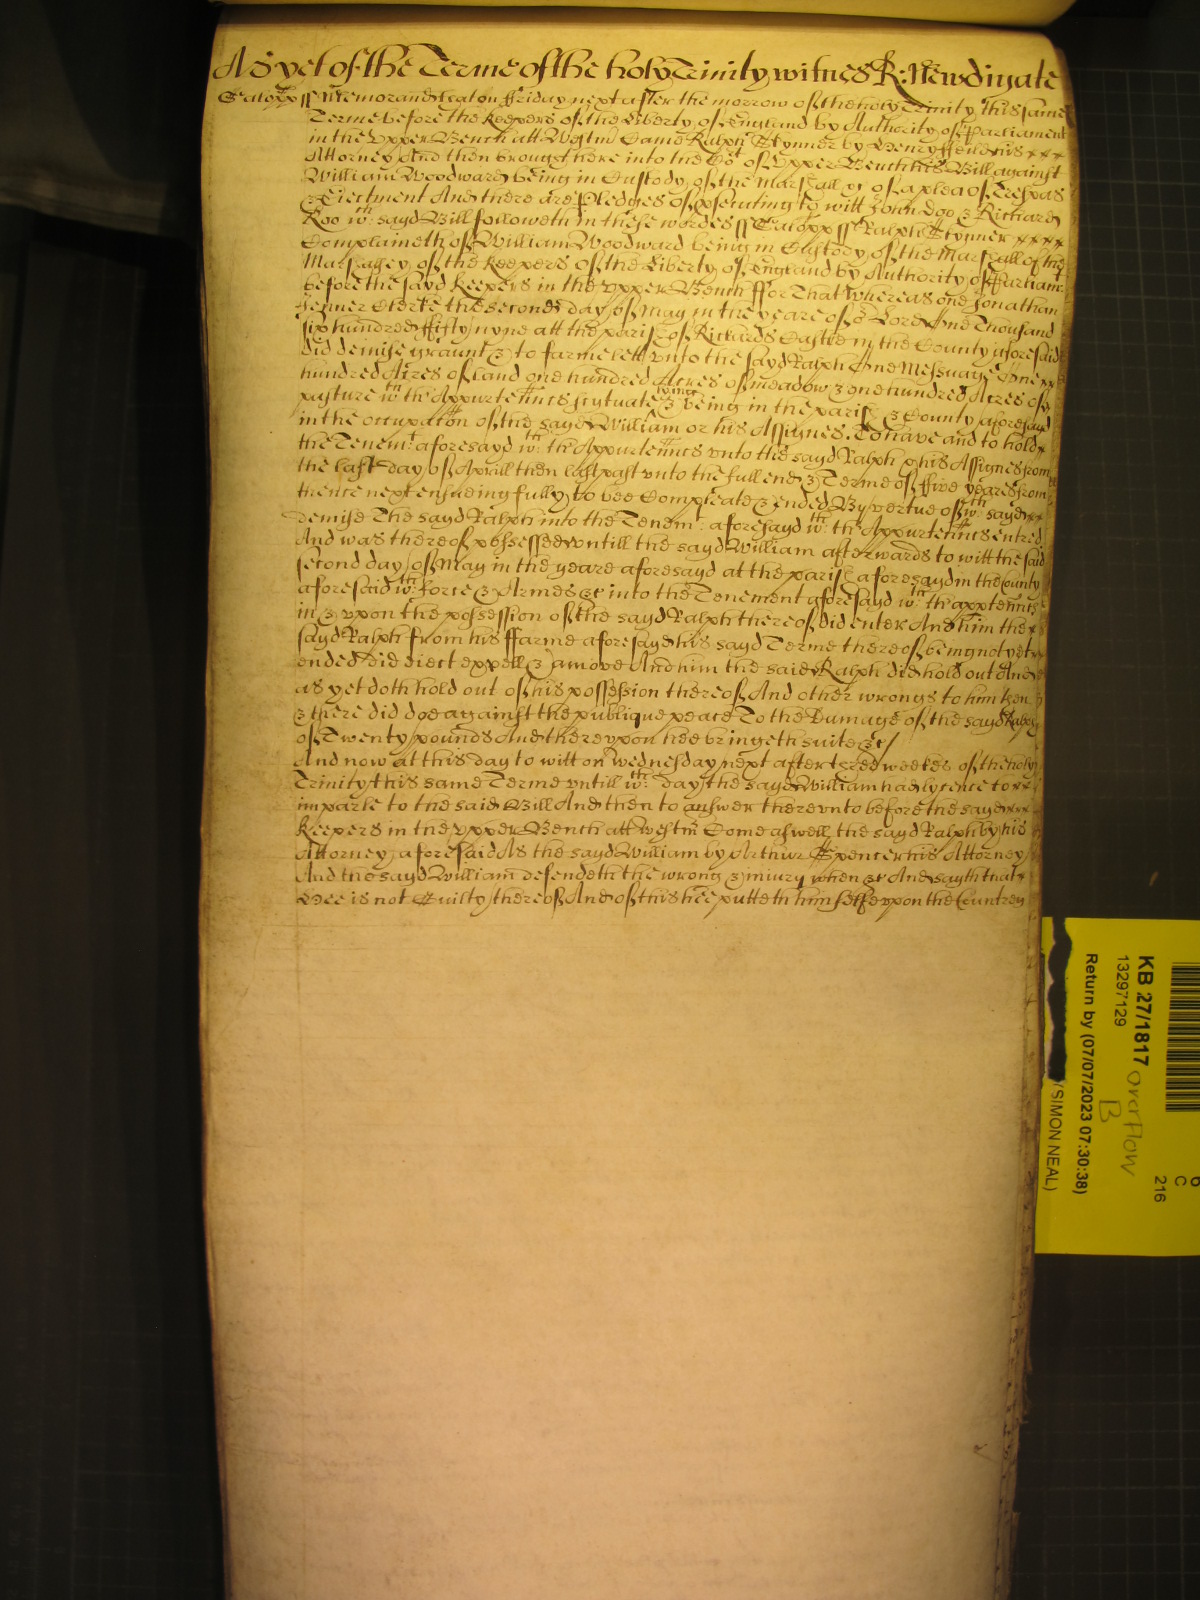 As yet of the Terme of the holy Trinity witnes R: Newdigate
Salopp ss Memorand that on ffriday next after the morrow of the holy Trinity this same
Terme before the Keepers of the Liberty of England by Authority of Parliament
in the Upper Bench att Westm Came Ralph Skynner by Henry his
Attorney And then brought here into the Cot of Upper Bench his Bill against
William Woodward being in Custody of the Marshall &c of a plea of Trespas
& Eiectment And there are Pledges of psecuting to witt John Doo & Richard
Roo wch sayd Bill followeth in these wordes ss Salopp ss Ralph Skynner
Complaineth of William Woodward being in Custody of the Marshall of the
Marshalsey of the Keepers of the Liberty of England by Authority of Parliamt
before the sayd Keepers in the Upper Bench ffor That whereas one Jonathan
Jenner Clerke the second day of May in the yeare of or Lord One Thousand
six hundred ffifty nyne att the parish of Rickards Castle in the County aforesaid
did demise graunt & to farme lett unto the sayd Ralph One Messuage one
hundred Acres of land one hundred Acres of meadow & one hundred Acres of
pasture wth th' Appurtenncs scytuate lying & being in the parish & County aforesayd
in the occupaton of the sayd William or his Assignes. To have and to hold
the Tenemt aforesayd wth th' Appurtenncs unto the sayd Ralph & his Assignes from
the last day of Aprill then last past unto the full end & Terme of ffive yeares from
thence next ensueing fully to bee Compleate & ended By vertue of wch sayd
demise The sayd Ralph into the Tenemt aforesayd wth th' Appurtenncs entred
And was thereof possessed untill the sayd William afterwards to witt the said
second day of May in the yeare aforesayd at the parish aforesayd in the County
aforesaid wth force & Armes &c into the Tenement aforesayd wth th' apptenncs
in & upon the possession of the sayd Ralph thereof did enter And him the
sayd Ralph from his ffarme aforesayd his sayd Terme thereof being not yet
ended did eiect expell & amove And him the said Ralph did hold out And
as yet doth hold out of his possession thereof And other wrongs to him then
& there did doe against the publique peace To the Damage of the sayd Ralph
of Twenty pounds And thereupon hee bringeth suite &c/
And now at this day to witt on Wednesday next after three weekes of the holy
Trinity this same Terme untill wch day the sayd William had lycence to
imparle to the said Bill And then to answer thereunto before the sayd
Keepers in the upper Bench att Westm Come aswell the sayd Ralph by his
Attorney aforesaid As the sayd William by Arthur Spencer his Attorney
And the sayd William defendeth the wrong & iniury when &c And sayth that
Hee is not Guilty thereof And of this hee putteth himselfe upon the Countrey
KB 27/1817
13297129
Return by (07/07/2023 07:30:38)
(SIMON NEAL)
overflow
B
216
C
6